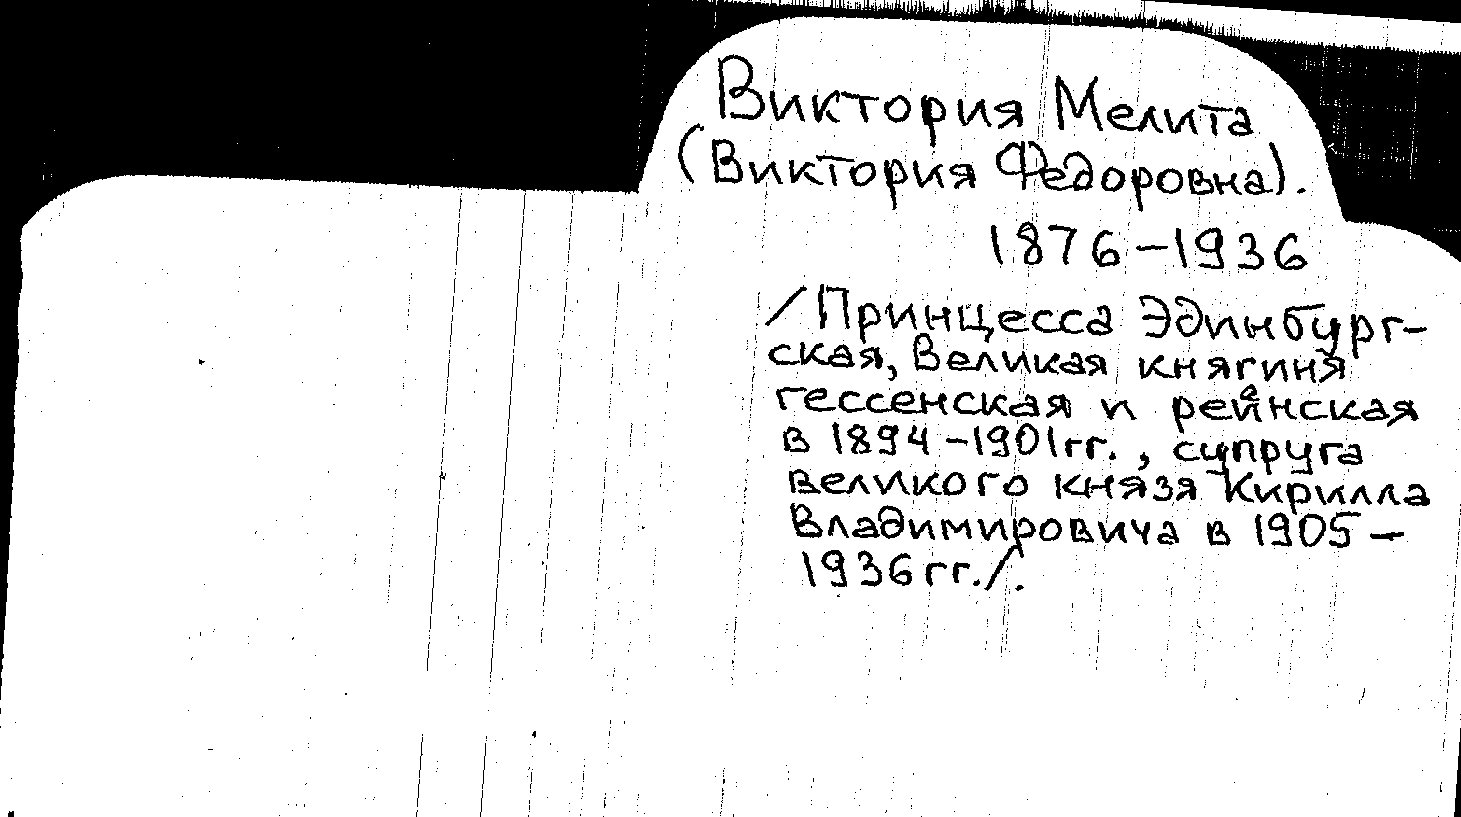 Виктория Мелита
(Виктория Федоровна).
1876-1936
/Принцесса Эдинбург-
ская, Великая княгиня
гессенская и рейнская
в 1894-1901гг., супруга
великого князя Кирилла
Владимировича в 1905-
1936гг./.